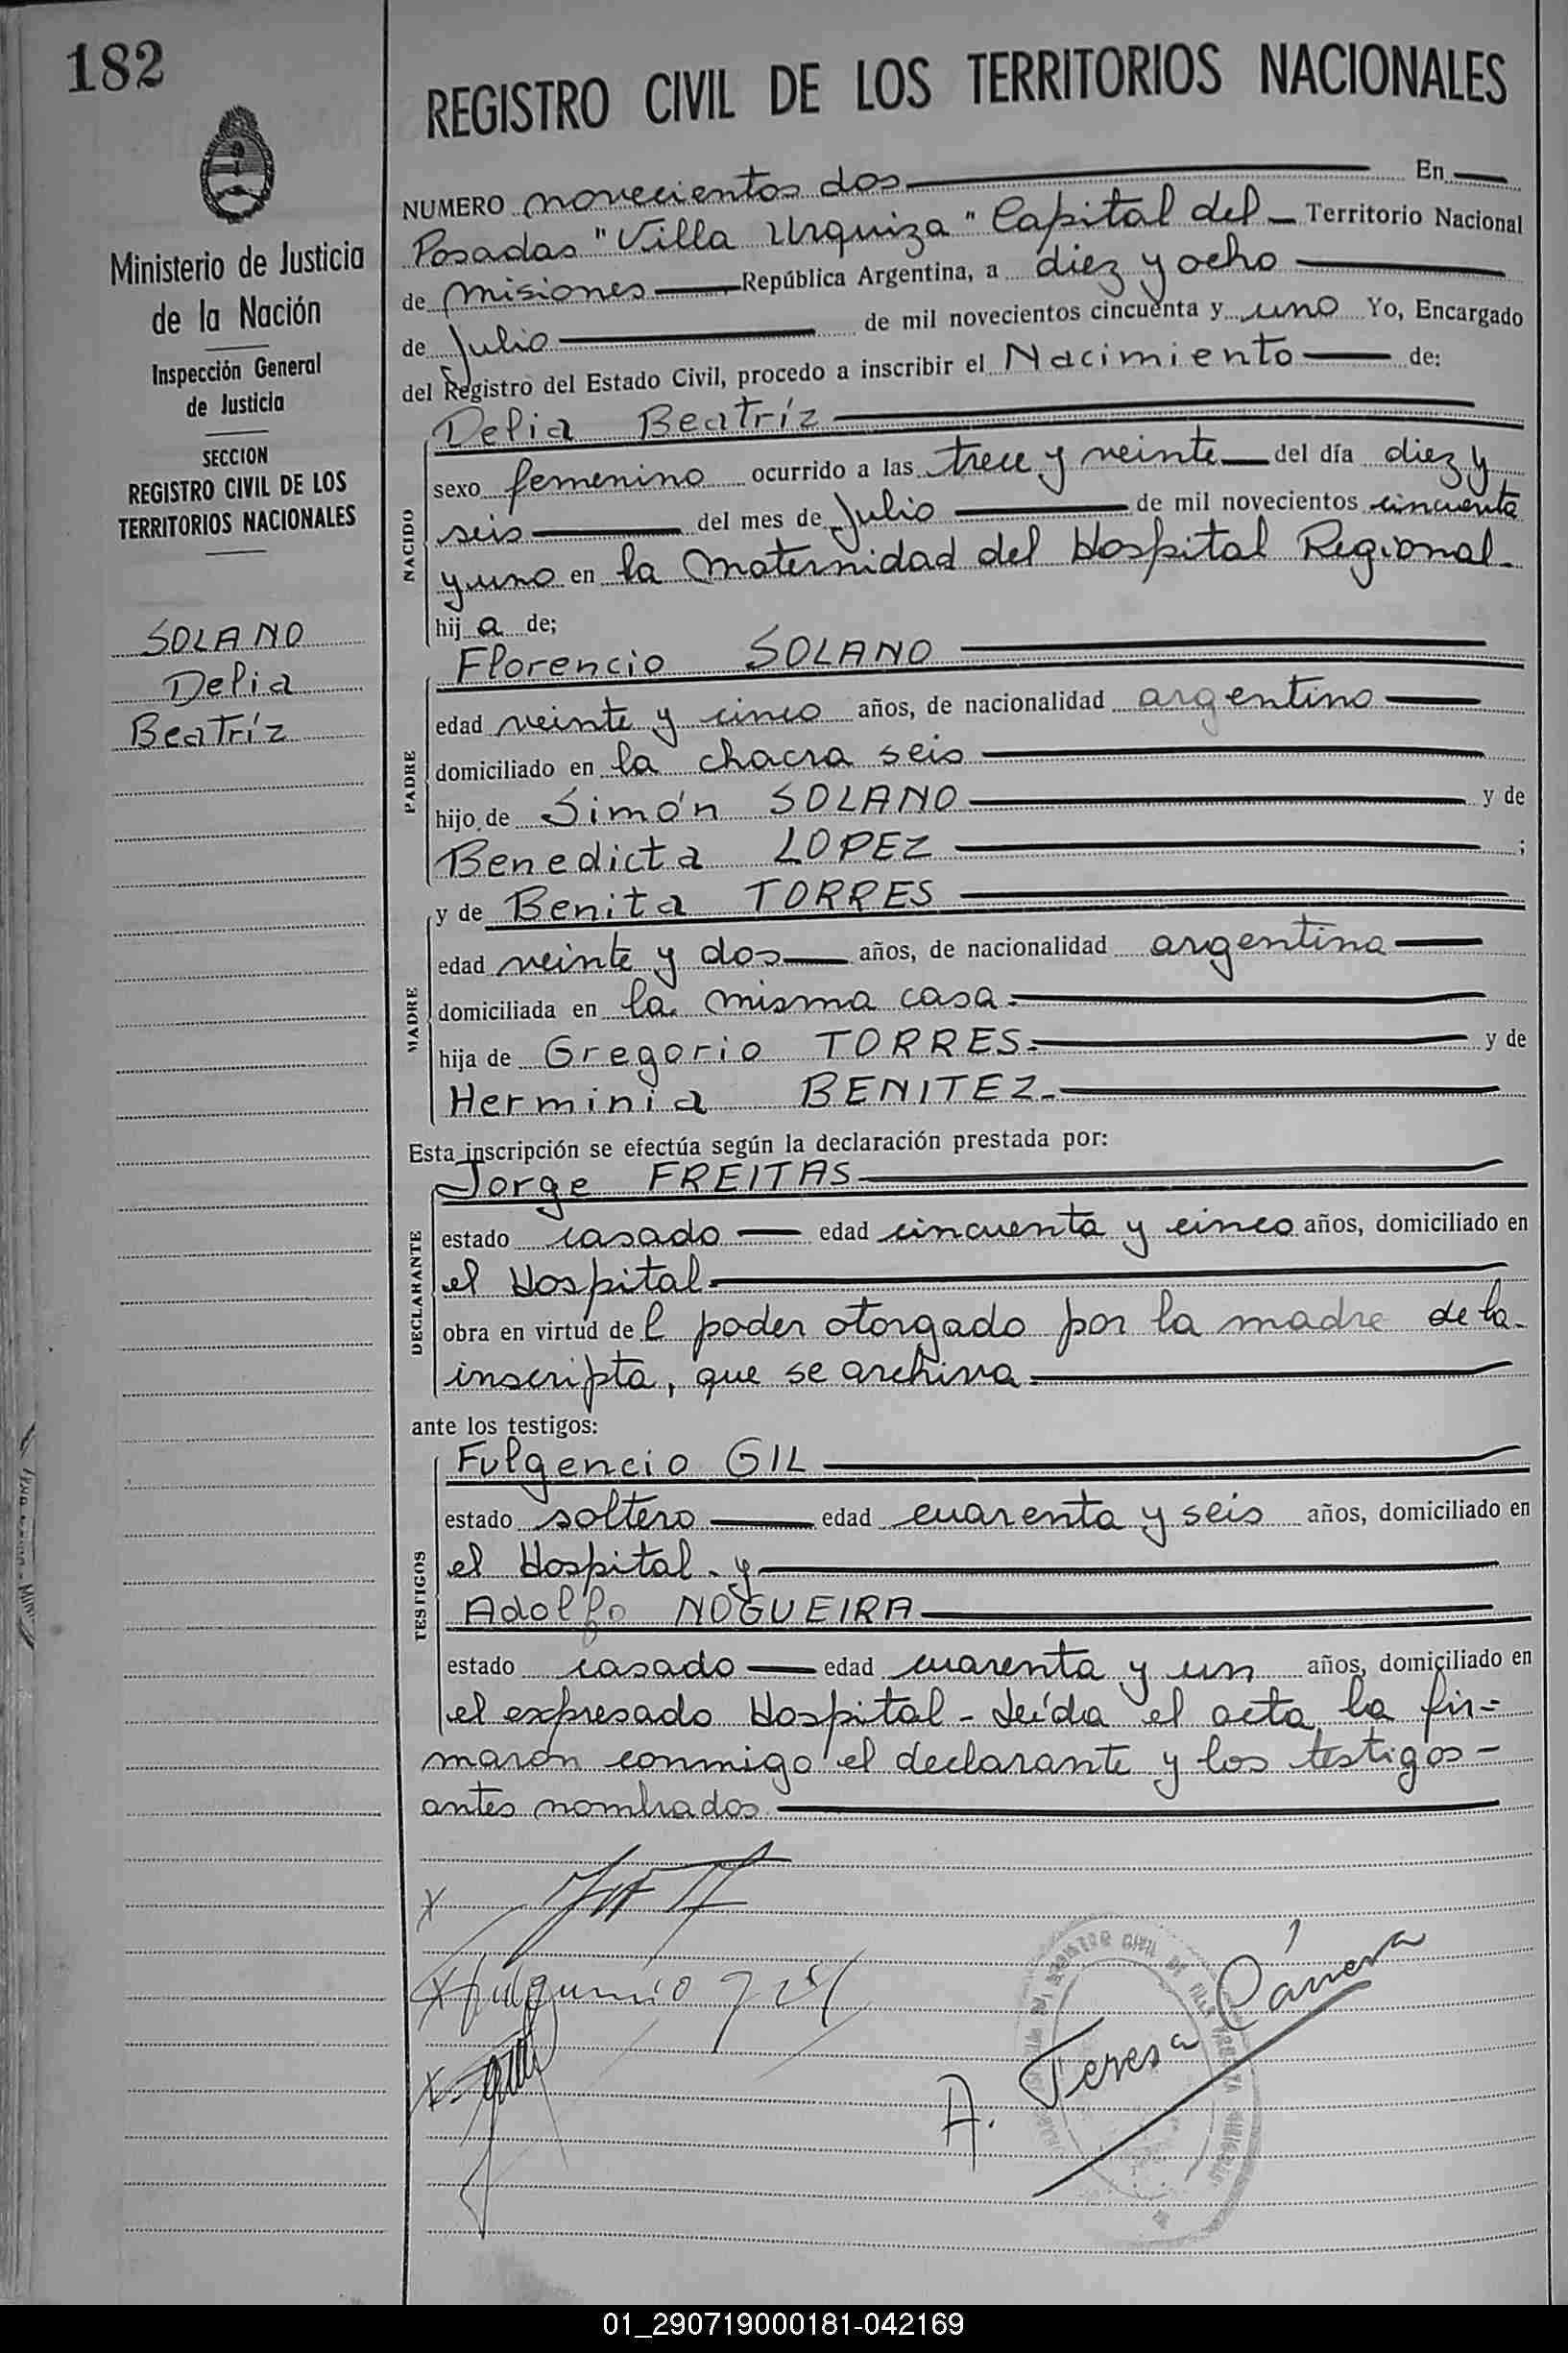 182
REGISTRO CIVIL DE LOS TERRITORIOS NACIONALES
Ministerio de Justicia
de la Nación
Inspección General
de Justicia
SECCION
REGISTRO CIVIL DE LOS
TERRITORIOS NACIONALES
SOLANO
Delia
Beatríz
NUMERO novecientos dos En
Posadas "Villa Urquiza" Capital del Territorio Nacional
de Misiones República Argentina, a diez y ocho
de Julio de mil novecientos cincuenta y uno Yo, Encargado
del Registro del Estado Civil, procedo a inscribir el Nacimiento de:
NACIDO
Delia Beatríz
sexo femenino ocurrido a las trece y veinte del día diez y
seis del mes de Julio de mil novecientos cincuenta
y uno en la Maternidad del Hospital Regional.
hij a de;
PADRE
Florencio SOLANO
edad veinte y cinco años, de nacionalidad argentino
domiciliado en la chacra seis
hijo de Simón SOLANO y de
Benedicta LOPEZ ;
MADRE
y de Benita TORRES
edad veinte y dos años, de nacionalidad argentina
domiciliada en la misma casa.
hija de Gregorio TORRES. y de
Herminia BENITEZ.
Esta inscripción se efectúa según la declaración prestada por:
DECLARANTE
Jorge FREITAS
estado casado edad cincuenta y cinco años, domiciliado en
el Hospital
obra en virtud de l poder otorgado por la madre de la
inscripta, que se archiva.
ante los testigos:
TESTIGOS
Fulgencio GIL
estado soltero edad cuarenta y seis años, domiciliado en
el Hospital. y
Adolfo NOGUEIRA
estado casado edad cuarenta y un años, domiciliado en
el expresado Hospital - Leída el acta, la fir=
maron conmigo el declarante y los testigos -
antes nombrados
Fulgencio Gil
A. Teresa
01_290719000181-042169